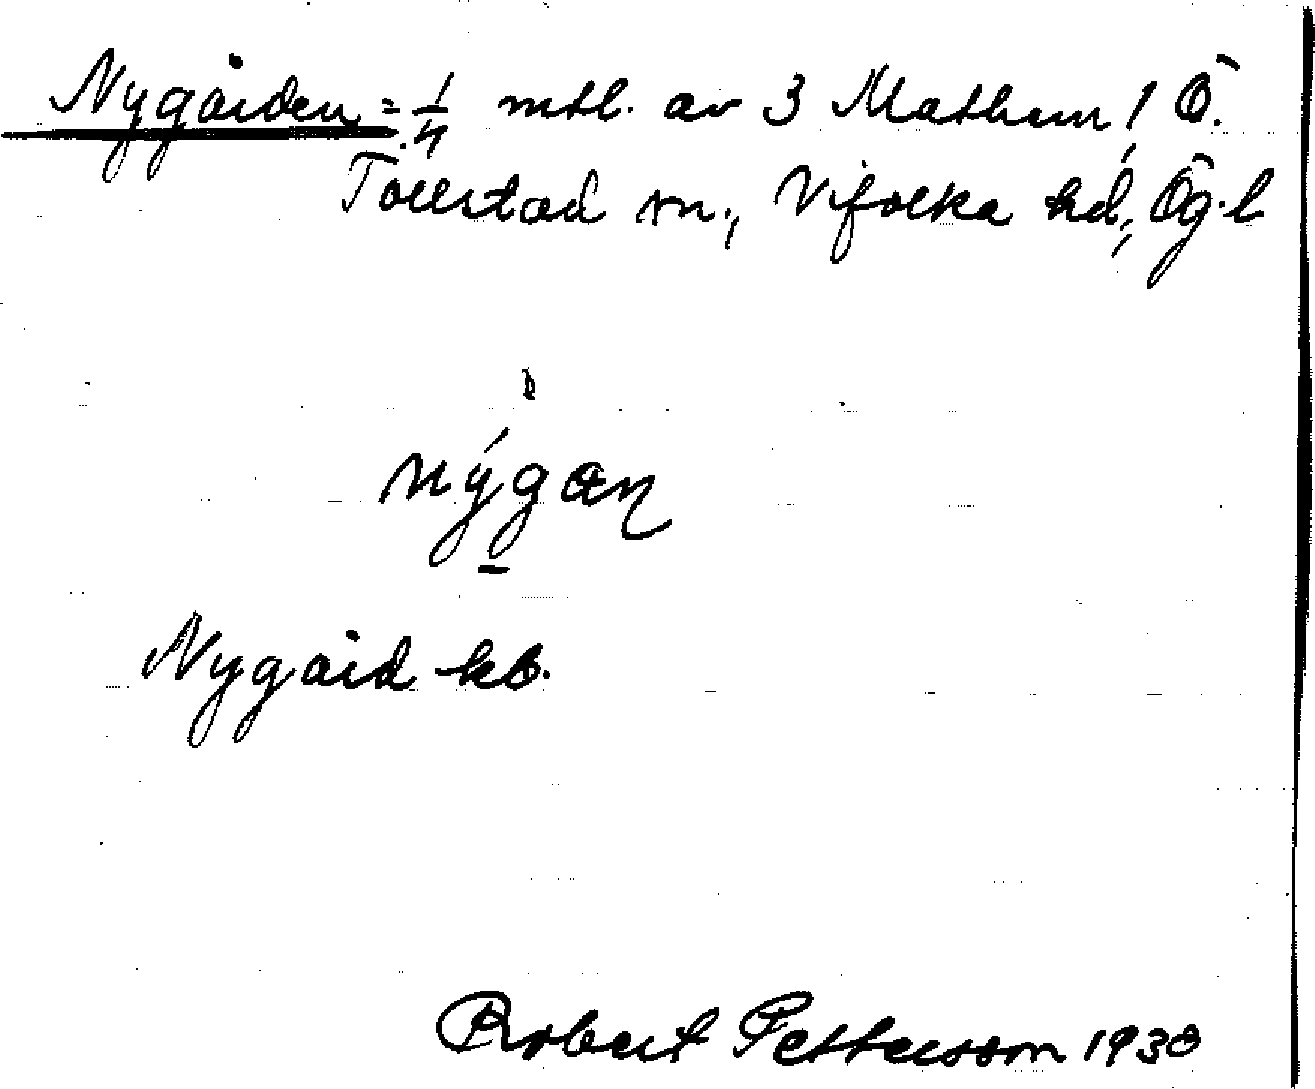 Nygården = 1/4 mtl. av 3 Mathem, Ö.
Tollstad sn., Vifolka hd, Ög. l
nýgaɳ
Nygård kb.
Robert Pettersson 1930